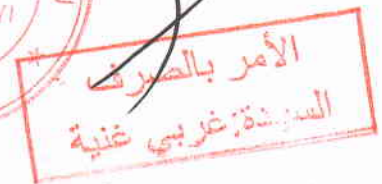 الأمر بالصرف
السيدة: غربي غنية